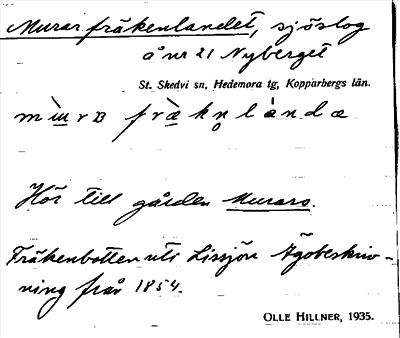 Murar fräkenlandet, sjöslog
å nr 21 Nyberget
St. Skedvi sn, Hedemora tg, Kopparbergs län.
Hör till gården Murars.
Fräkenbotten uti Lissjön Ägobeskriv-
ning från 1854.
OLLE HILLNER, 1935.